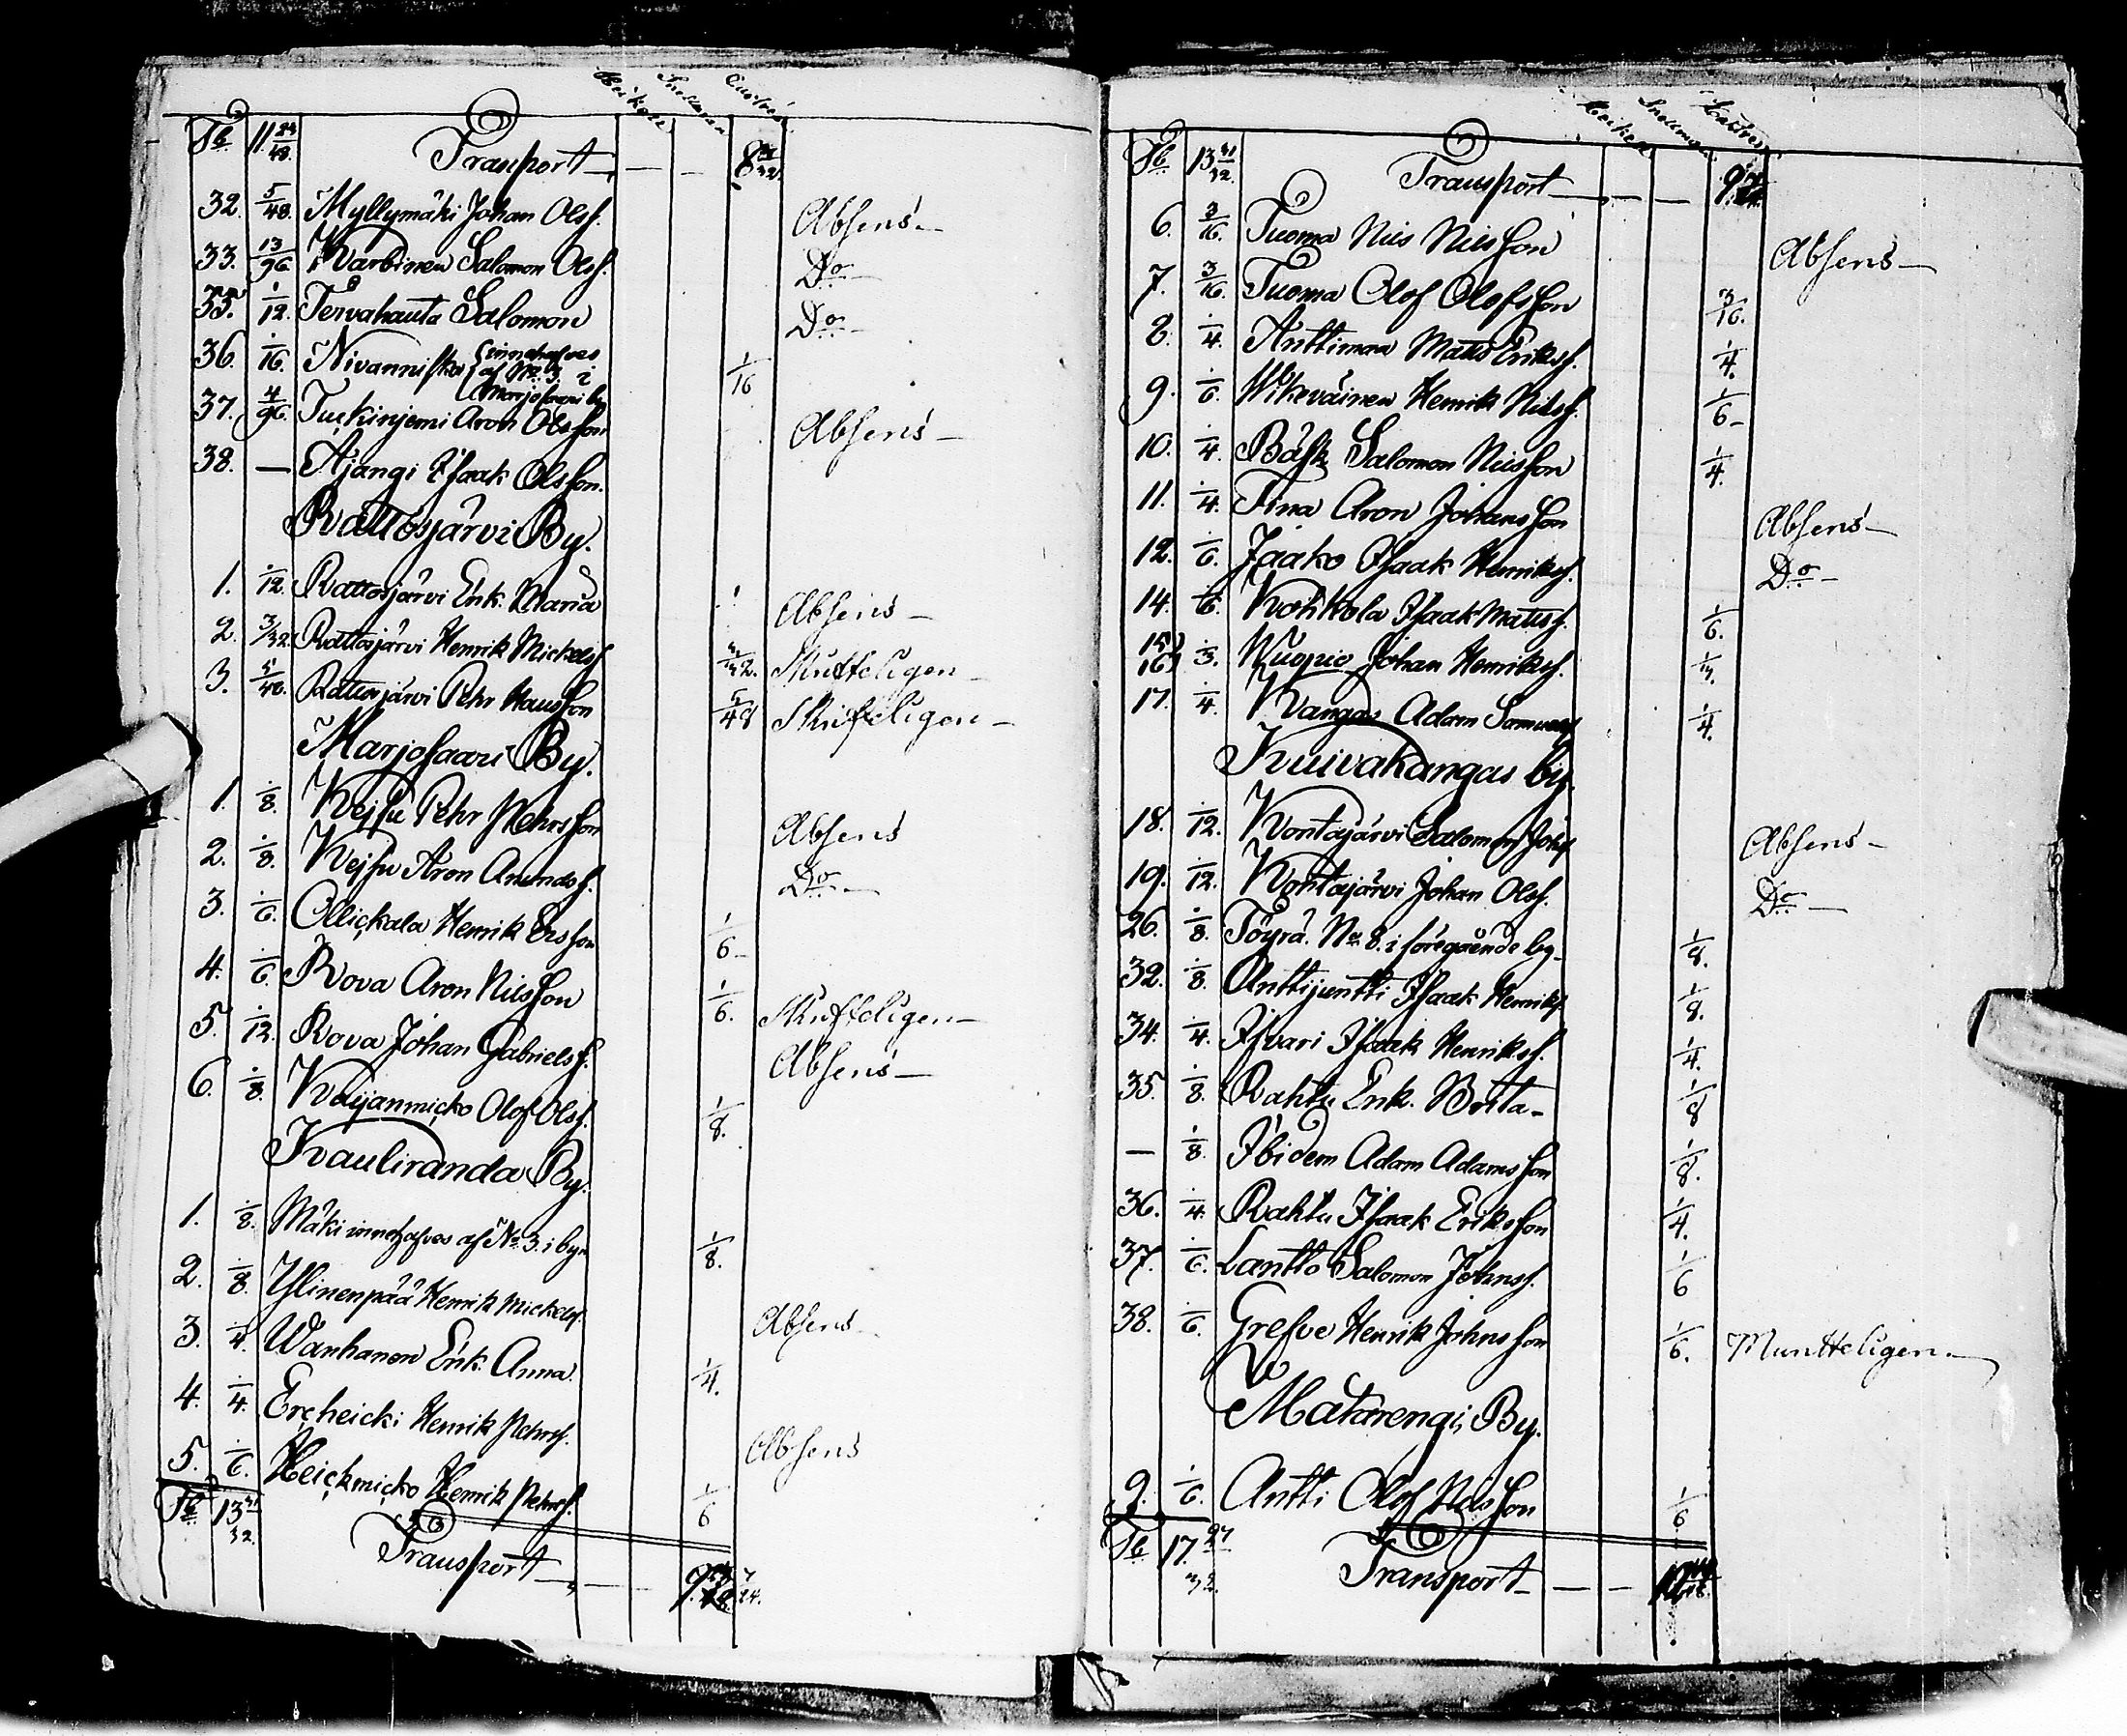 Heikell Snellman Castrén
Sb 11 24/48. Transport — — 8
32. 5/48. Myllymäki Johan Olsf. Absens —
33. 13/96 Karbinen Salomon Olsf. Do —
35. 1/12. Tervahauta Salomon Do —
36. 1/16. Nivanniska innehafves af No. 3 i Marjosaari by 1/16
37. 4/96. Tuckinjemi Aron Olsson Absens —
38. — Äjangi Isaak Olsson.
Rattosjärvi By.
1. 1/12. Rattosjärvi Enk. Maria Absens —
2. 3/32. Rattosjärvi Henrik Mickelsf. 3/32. Skrifteligen —
3. 5/48. Rattosjärvi Pehr Hansson 5/48 Skrifteligen —
Marjosaari By.
1. 1/8. Kejsu Pehr Pehrsson Absens
2. 1/8. Kejsu Aron Amundsf. Do —
3. 1/6. Ollickala Henrik Ersson 1/6 —
4. 1/6. Rova Aron Nilsson 1/6. Skrifteligen —
5. 1/12. Rova Johan Gabrielsf. Absens —
6. 1/8. Keijanmicko Olof Olsf. 1/8.
Kauliranda By.
1. 1/8. Mäki innehafves af No. 3. i byn 1/8.
2. 1/8. Ylinenpää Henrik Mickelsf. Absens —
3. 1/4. Wanhanen Enk. Anna. 1/4.
4. 1/4. Ercheicki Henrik Pehrsf. Absens
5. 1/6. Heickmicko Henrik Pehrsf. 1/6
Sb 13 31/32. Transport — — 9 7/24.
Heikell Snellman Castrén
Sb 13 31/32. Transport — — 9
6. 3/16. Tuoma Nils Nilsson Absens —
7. 3/16. Tuoma Olof Olofsson 3/16.
8. 1/4. Anttimaa Matts Eriksf. 1/4.
9. 1/6. Wikeväinen Henrik Nilsf. 1/6 —
10. 1/4. Bäsk Salomon Nilsson 1/4.
11. 1/4. Tina Aron Johansson Absens —
12. 1/6. Jaako Isaak Henriksf. Do —
14. 1/6. Kohkola Isaak Mattsf. 1/6.
15) 16) 1/3. Kuopio Johan Henriksf. 1/3.
17. 1/4. Kangas Adam Samuelsf 1/4.
Kuivakangas by.
18. 1/12. Kontajärvi Salomon Johsf Absens —
19. 1/12. Kontajärvi Johan Olsf. Do —
26. 1/8. Töyrä. No. 8. i föregående by — 1/8.
32. 1/8. Anttijuntti Isaak Henriksf 1/8.
34. 1/4. Isvari Isaak Henriksf. 1/4.
35. 1/8. Rahtu Enk. Brita — 1/8
— 1/8. Ibidem Adam Adamsson 1/8.
36. 1/4. Rahtu Isaak Eriksson 1/4.
37. 1/6. Lantto Salomon Johnsf. 1/6
38. 1/6. Grefve Henrik Johnsson 1/6. Muntteligen —
Matarengi By.
9. 1/6. Antti Olof Nilsson 1/6
Sb 17. 27/32. Transport — — 12